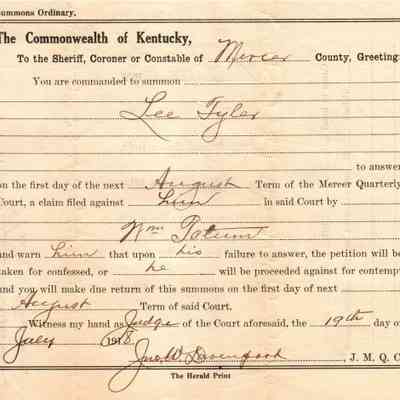 Summons Ordinary.
The Commonwealth of Kentucky,
To the Sheriff, Coroner or Constable of Mercer County, Greeting:
You are commanded to summon
Lee Tyler
to answer
on the first day of the next August Term of the Mercer Quarterly
Court, a claim filed against him in said Court by
Wm Tatum
and warn him that upon his failure to answer, the petition will be
taken for confessed, or he will be proceeded against for contempt
and you will make due return of this summons on the first day of next
August Term of said Court.
Witness my hand as Judge of the Court aforesaid, the 19th day of
July 1918
Jno. W. Davenport, J. M. Q. C.
The Herald Print